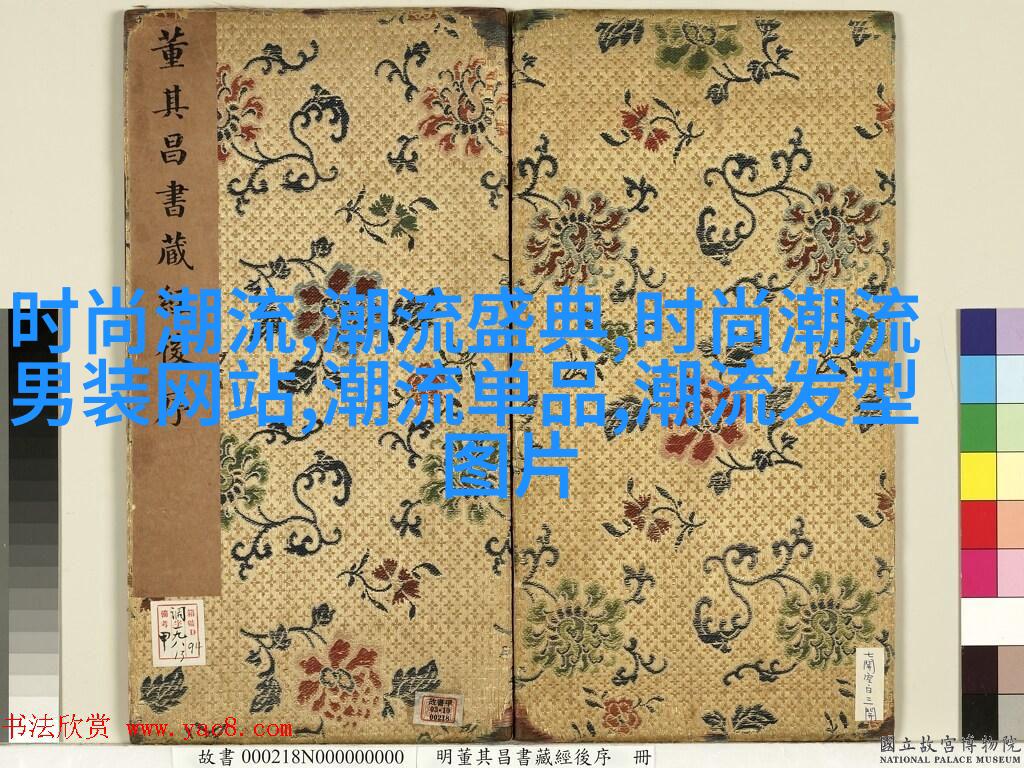 董其昌書蔵經後序
时尚潮流,潮流盛典,时尚潮流
男装网站,潮流单品,潮流发型
图片
故書甲
03•10
00218
七開空白三開
书法欣赏 www.yac8.com
故書 000218N000000000 明董其昌書藏經後序 冊
國立故宮博物院
NATIONAL PALACE MUSEUM